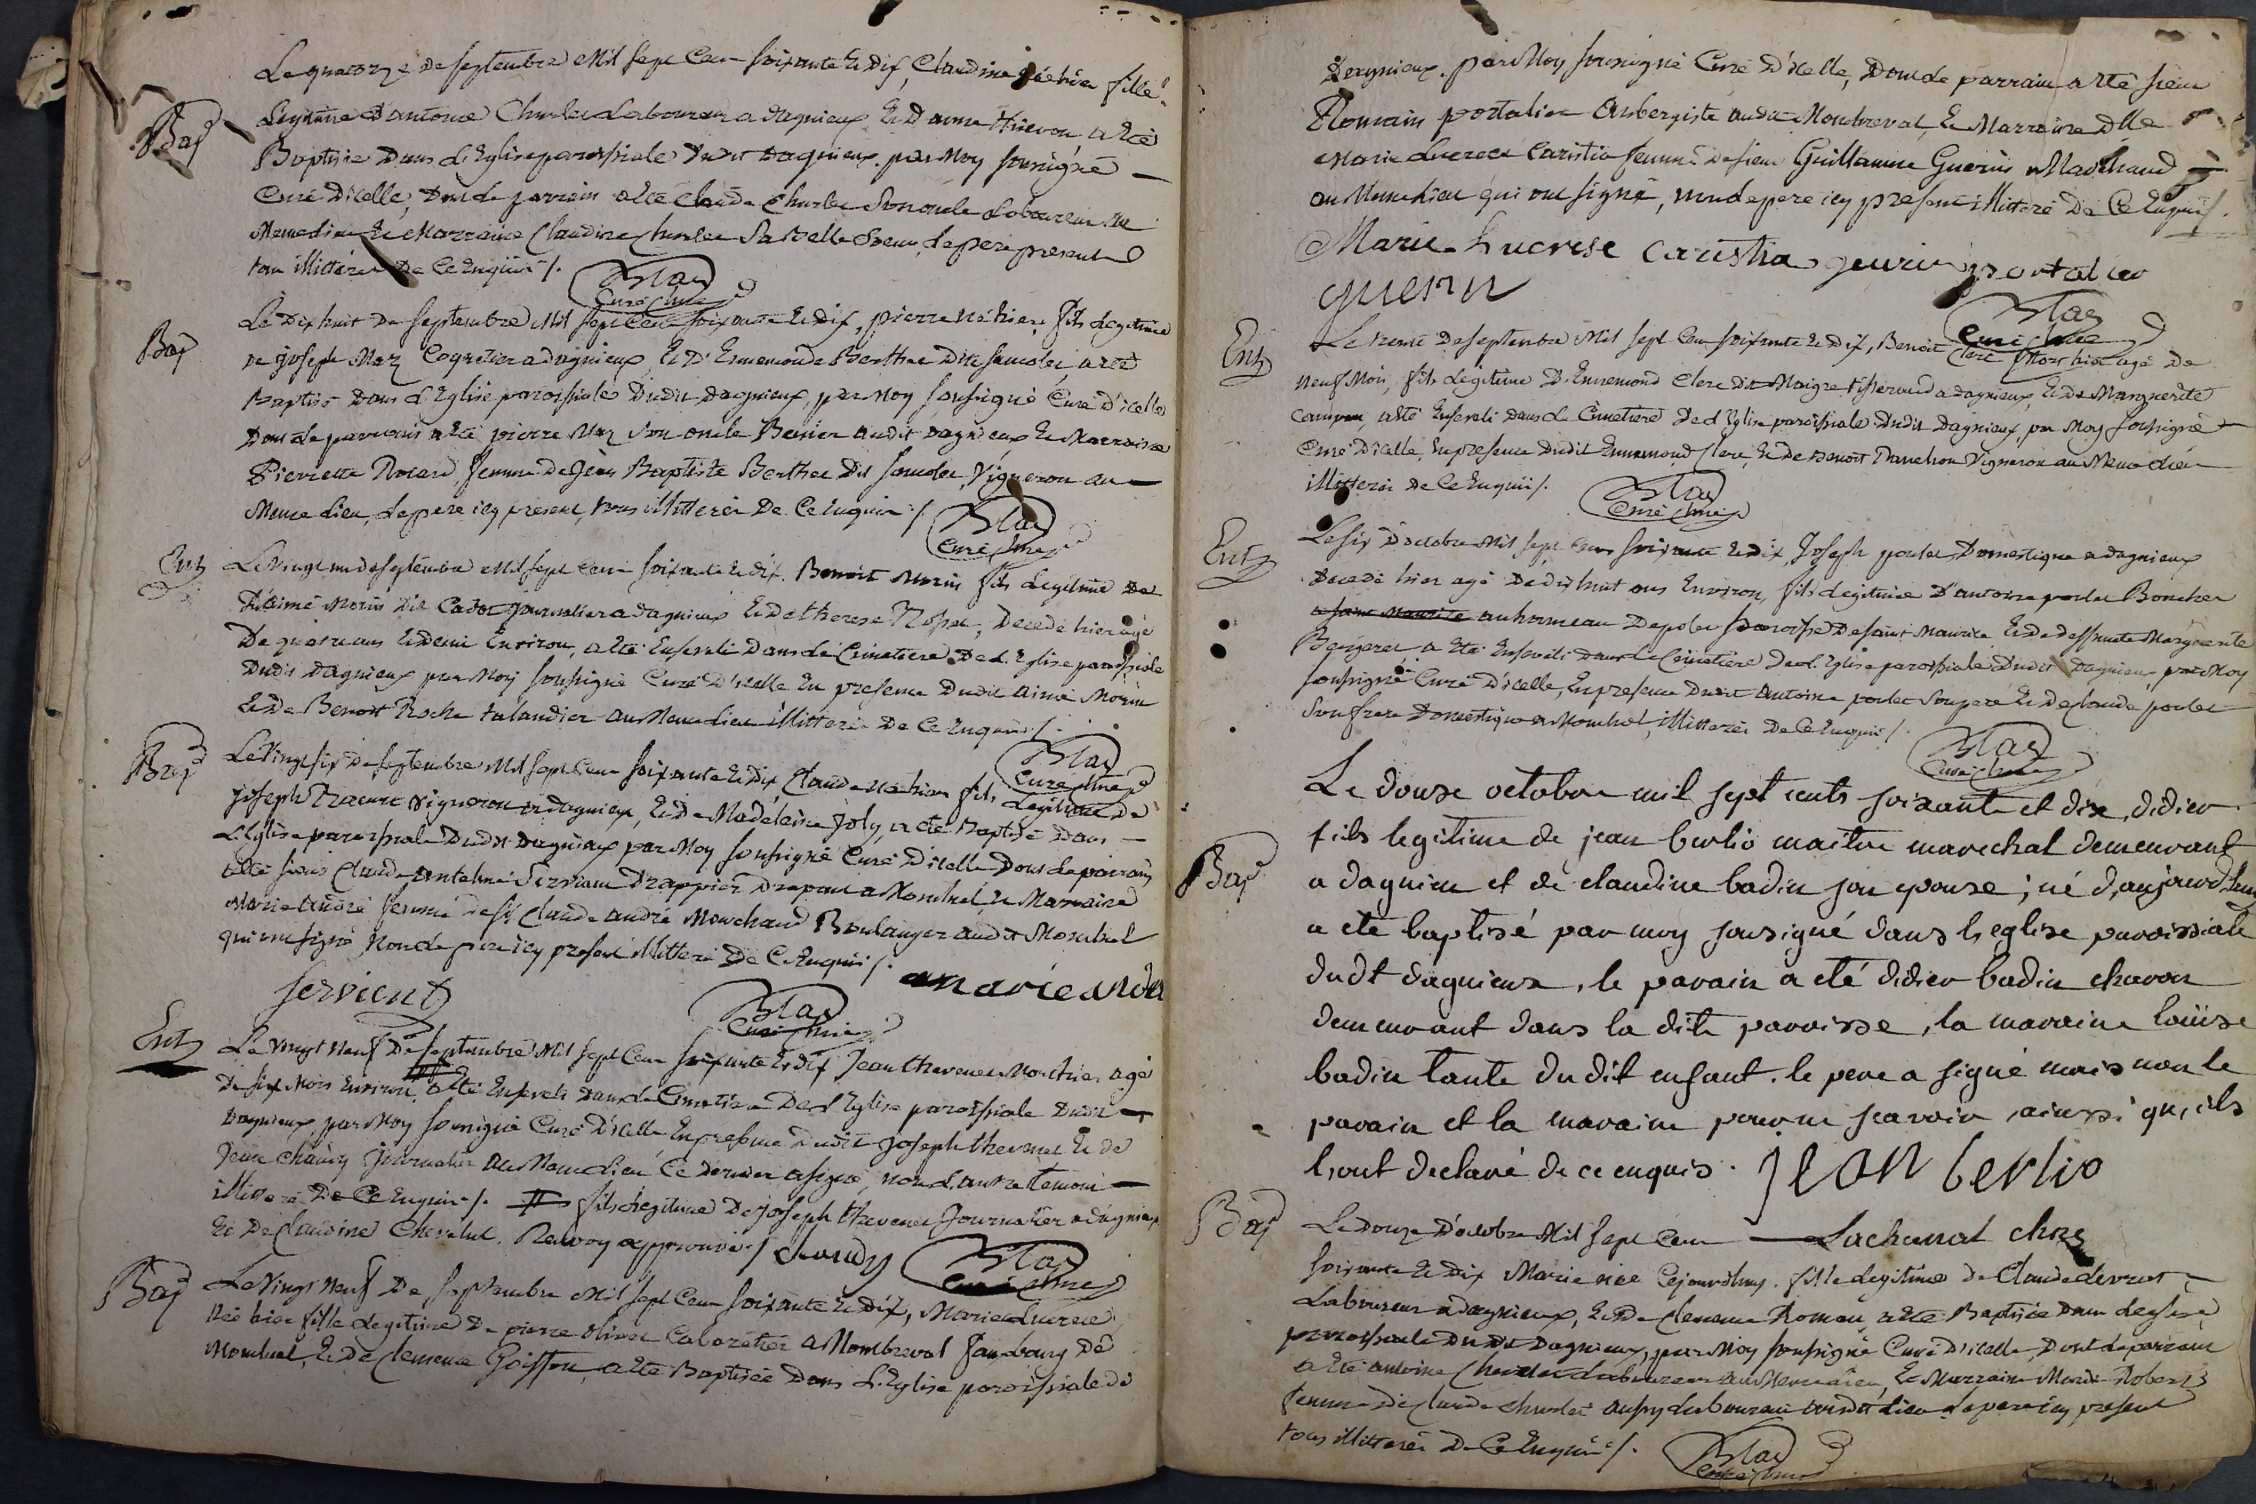 Le quatorze de septembre Mil sept Cent soixante Et Dix, Claudine née hier fille
Legitime D'antoine Charlet Laboureur a dagnieux Et D'anne Thievon, a Eté
Bap
Baptisée Dans L'Eglise paroissiale Dudit Dagnieux par Moy soussigné
Curé D'icelle, Dont le parrain a Eté Claude Charlet son oncle Laboureur au
Meme Lieu Et Marraine Claudine Charlet sa Soeur Le pere present
tous illitterés De Ce Enquis /.
Curé
Le Dix huit De septembre Mil sept Cent soixante Et Dix, pierre né hier, fils Legitime
Bap
de joseph Maz a dagnieux, Et D'Ennemonde Berthet Dite a Eté
Baptisé Dans L'Eglise paroissiale Dudit Dagnieux, par Moy soussigné Curé D'icelle
Dont le parrain a Eté pierre Maz son oncle audit dagnieux Et Marraine
Pierrette femme De Jean Baptiste Berthet Dit Vigneron au
Meme Lieu, Le pere icy present, tous illitterés De Ce Enquis /
Curé
Ent
Le Vingt un de septembre Mil sept Cent soixante Et dix, Benoit Morin fils Legitime De
D'aimé Morin Dit Cadot journalier a dagnieux Et De therese Decedé hier agé
De quatre ans Et demi Environ, a Eté Enseveli Dans Le Cimetiere De L'Eglise paroissiale
Dudit Dagnieux par Moy soussigné Curé D'icelle En presence Dudit aimé Morin
Et De Benoit Roche taland ier au Meme Lieu illitterés De Ce Enquis /.
Curé
Bap
Le Vingt six De septembre Mil sept Cent soixante Et Dix Claude né hier fils Legitime De
joseph vigneron a dagnieux, Et De Madeleine Joly, a eté Baptisé Dans
L'Eglise paroissiale Dudit Dagnieux par Moy soussigné Curé D'icelle Dont Le parrain
a Eté sieur Claude antelme Servient Drappier Drapant a Montluel, Et Marraine
Marie André femme De sr Claude andré Marchand Boulanger audit Montluel
qui ont signé Non Le pere icy present illitteré De Ce Enquis /.
Servient
marie andre
Curé
Ent
Le Vingt Neuf De septembre Mil sept Cent soixante Et Dix Jean thevenet Mort hier agé
De six Mois Environ, # a Eté Enseveli Dans Le Cimetiere De L'Eglise paroissiale Dudit
Dagnieux par Moy soussigné Curé D'icelle, En presence Dudit joseph thevenet Et De
Jean Chaudy journalier au Meme Lieu, Ce Dernier a signé, non L'autre temoin
illitteré De Ce Enquis /. # fils Legitime De joseph thevenet journalier a dagnieux
Et De Claudine Chevalut. Renvoy approuvé / chaudy
Curé
Bap
Le Vingt Neuf De septembre Mil sept Cent soixante Et Dix, Marie Lucrece
Née hier fille Legitime De pierre olivet Cabaretier a Montbreval faubourg De
Montluel, Et De Clemence Goiffon, a Eté Baptisée Dans L'Eglise paroissiale de
Dagnieux par Moy soussigné Curé D'icelle, Dont Le parrain a Eté sieur
Romain portalier aubergiste audit Montbreval, Et Marraine Dlle
Marie Lucrece Caristia femme De sieur Guillaume Guerin Marchand
au Meme Lieu qui ont signé, non Le pere icy present illitteré De Ce Enquis /.
Marie Lucrese Caristia guerin portalier
guerin
Curé
Ent
Le trente De septembre Mil sept Cent soixante Et Dix, Benoit Clerc Mort hier agé De
Neuf Mois, fils Legitime D'Ennemond Clerc Dit Maigre tisserand a dagnieux, Et De Marguerite
a Eté Enseveli Dans Le Cimetiere De L'Eglise paroissiale Dudit Dagnieux, par Moy soussigné
Curé D'icelle, En presence Dudit Ennemond Clerc, Et De Benoit Vigneron au Meme Lieu
illitterés De Ce Enquis /.
Curé
Ent
Le six D'octobre Mil sept Cent soixante Et Dix, Joseph poulet Domestique a dagnieux
Decedé hier agé De dix huit ans Environ, fils Legitime D'antoine poulet Boucher
a saint Maurice au hameau De paroisse De saint Maurice Et De deffunte Marguerite
Bergeret, a Eté Enseveli Dans Le Cimetiere De L'Eglise paroissiale Dudit Dagnieux, par Moy
soussigné Curé D'icelle, En presence Dudit antoine poulet son pere Et De Claude poulet
son frere Domestique a Montluel, illitterés De Ce Enquis /.
Curé
Le douse octobre mil sept cents soixante et dix, didier
fils legitime de jean berlio maitre marechal demeurant
Bap
a dagnieu et de claudine badin son epouse; né d'aujourd'huy
a eté baptisé par moy sousigné dans l'eglise paroissiale
dudt dagnieux, le parain a eté didier badin charon
demeurant dans la dite paroisse, la maraine loüise
badin tante du dit enfant. le pere a signé mais non le
parain et la maraine pour ne scavoir ainssi qu'ils
l'ont declaré de ce enquis. jean berlio
Bap
Le Douze D'octobre Mil sept Cent Lachanal
soixante Et Dix Marie née Cejourd'huy. fille Legitime De Claude
Laboureur a dagnieux, Et De Clemence Roman, a Eté Baptisée Dans L'eglise
paroissiale Dudit Dagnieux, par Moy soussigné Curé D'icelle, Dont Le parrain
a Eté antoine Charlet Laboureur au Meme Lieu, Et Marraine Marie Robert
femme De Claude Charlet aussy Laboureur audit Lieu Le pere icy present
tous illitterés De Ce Enquis /.
Curé